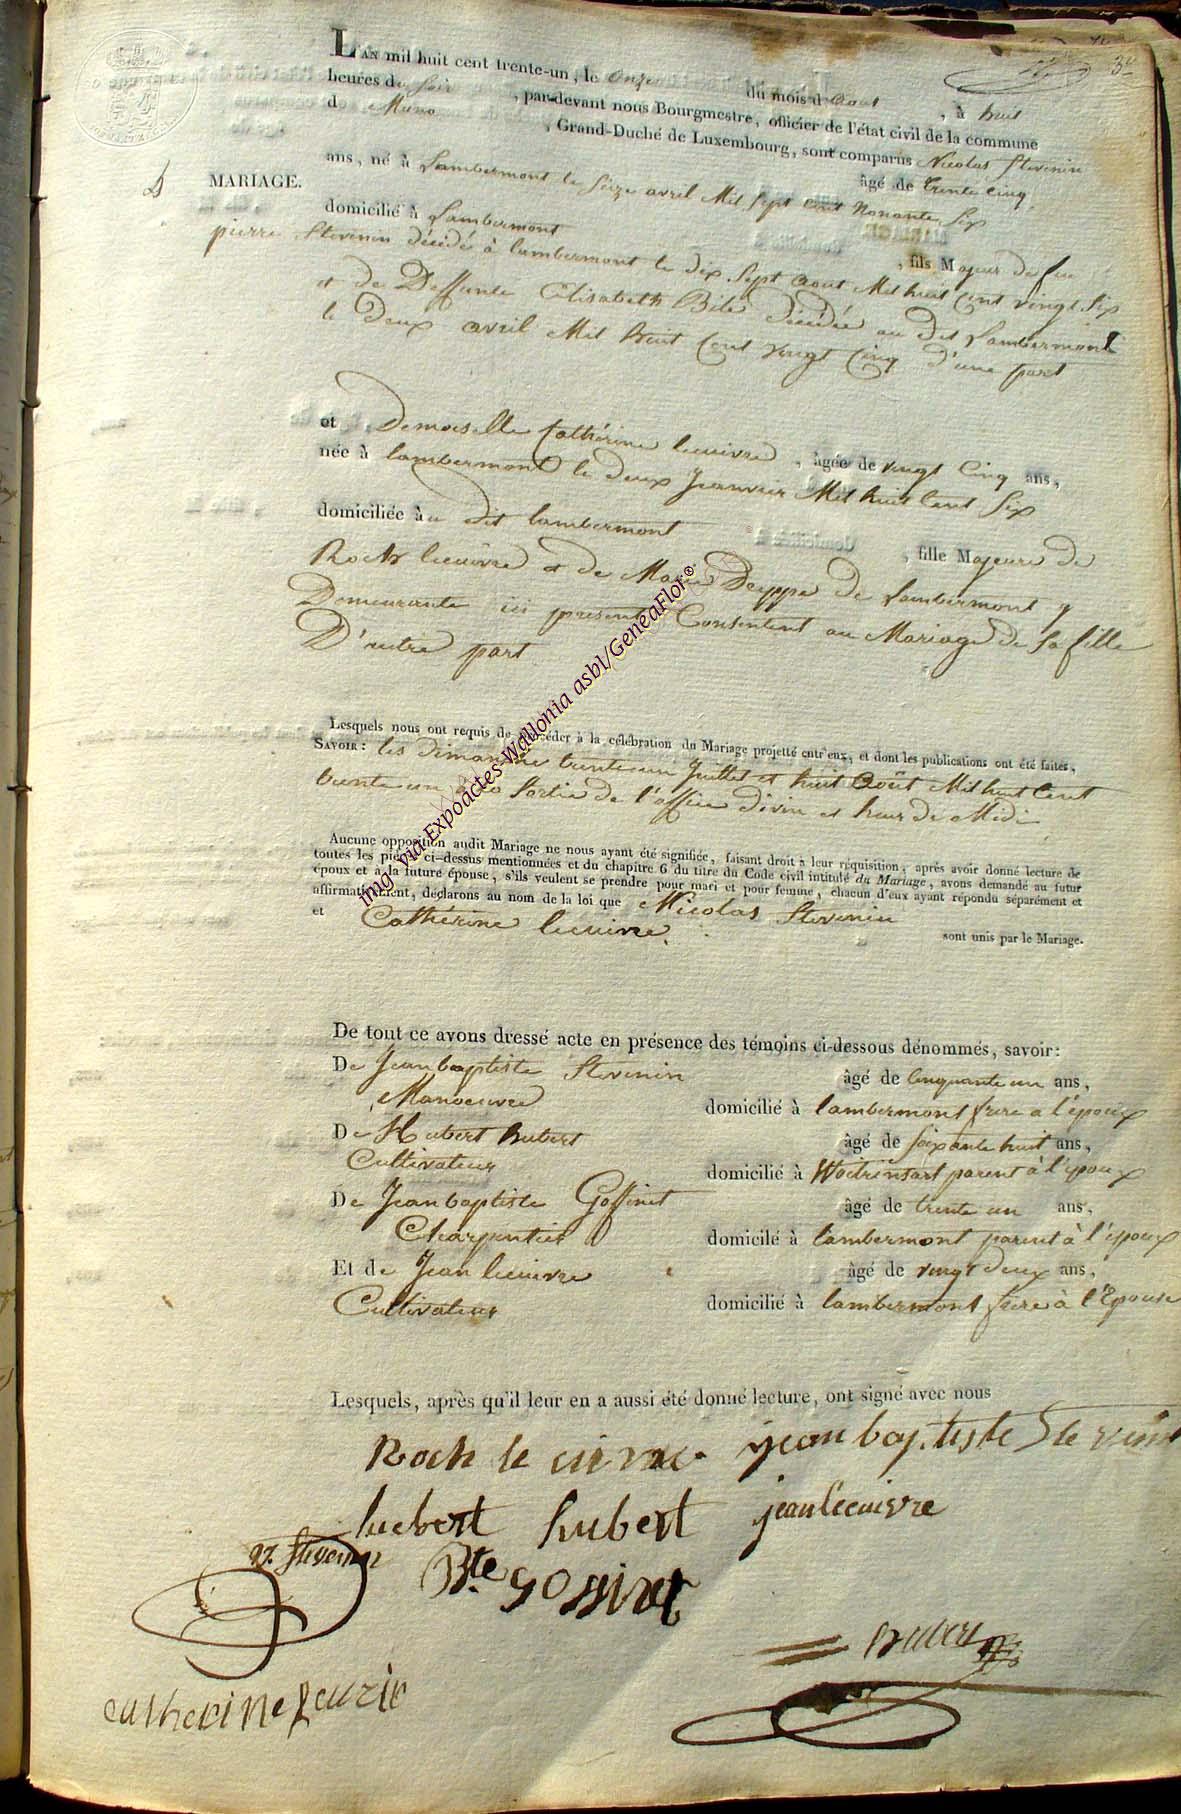 L'AN mil huit cent trente-un, le onze du mois d'aout, à huit
heures du soir, par-devant nous Bourgmestre, officier de l'état civil de la commune
d Muno, Grand-Duché de Luxembourg, sont comparus Nicolas Stevenin
âgé de trente cinq
ans, né à Lambermont le seize avril Mil sept cent nonante six
MARIAGE.
domicilié à Lambermont, fils Majeur de feu
pierre Stevenin décédé à lambermont le dix sept aout Mil huit Cent vingt six
et de Deffunte Elisabeth Bile décédée au dit Lambermont
le Deux avril Mil huit Cent vingt Cinq d'une part
et Demoiselle Cathérine lecuivre, âgée de vingt Cinq ans,
née à lambermont le deux Jeanvier Mil huit Cent Six
domiciliée àu dit lambermont, fille Majeure de
Roch lecuivre et de Marie Deyppe de Lambermont y
Demeurante ici present Consentent au Mariage de Sa fille
D'autre part
Lesquels nous ont requis de procéder à la célébration du Mariage projetté entr'eux, et dont les publications ont été faites,
SAVOIR: les dimanche trente un Juillet et huit Août Mil huit Cent
trente un à la Sortie de l'office divin et heur de Midi
Aucune opposition audit Mariage ne nous ayant été signifiée, faisant droit à leur réquisition, après avoir donné lecture de
toutes les pièces ci-dessus mentionnées et du chapitre 6 du titre du Code civil intitulé du Mariage, avons demandé au futur
époux et à la future épouse, s'ils veulent se prendre pour mari et pour femme, chacun d'eux ayant répondu séparément et
affirmativement, déclarons au nom de la loi que Nicolas Stevenin
et Cathérine lecuivre.
sont unis par le Mariage.
De tout ce avons dressé acte en présence des témoins ci-dessous dénommés, savoir:
De Jean baptiste Stevenin âgé de Cinquante un ans,
Manoeuvre domicilié à lambermont frere a l'époux
De Hubert hubert âgé de soixante huit ans,
Cultivateur domicilié à Woitrinsart parent à l'époux
De Jean baptiste Goffinet âgé de trente un ans,
Charpentier domicilé à lambermont parent à l'époux
Et de Jean lecuivre âgé de vingt deux ans,
Cultivateur domicilié à lambermont frere à l'Epouse
Lesquels, après qu'il leur en a aussi été donné lecture, ont signé avec nous
Roch le cuivre jean baptiste Stevenin
huebert hubert jean lecuivre
N. Stevenin Bte goffinet
hubert
catherine
img via Expoactes-Wallonia asbl/GeneaFlor®